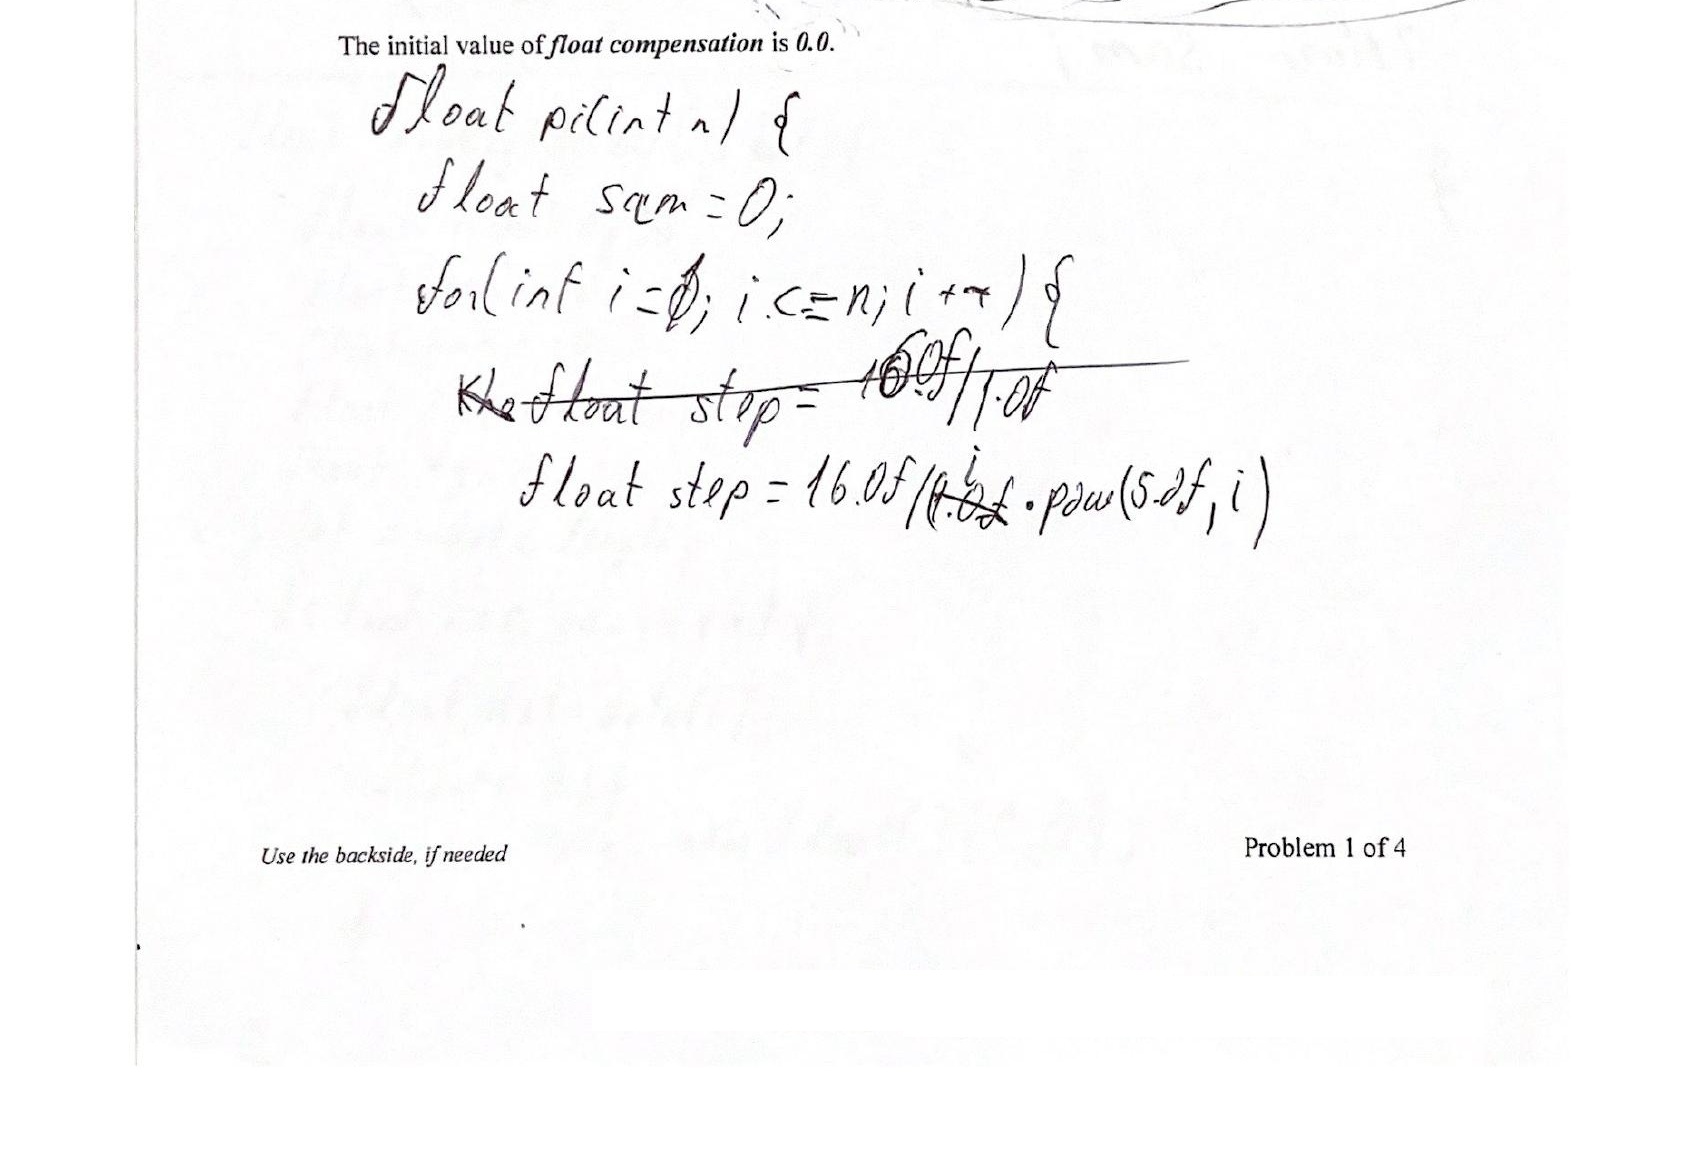 The initial value of float compensation is 0.0.
float pi(int n) {
float sum = 0;
for(int i=0; i<=n; i++) {
float step = 16.0f/1.0f
float step = 16.0f/(i · pow(5.0f, i)
Use the backside, if needed
Problem 1 of 4